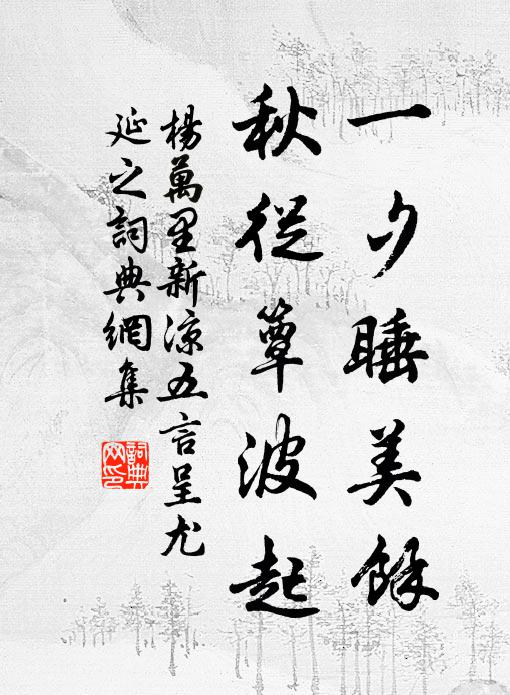 一夕睡美餘
秋從簟波起
楊萬里新涼五言呈尤
延之詞典網集
詞典网印